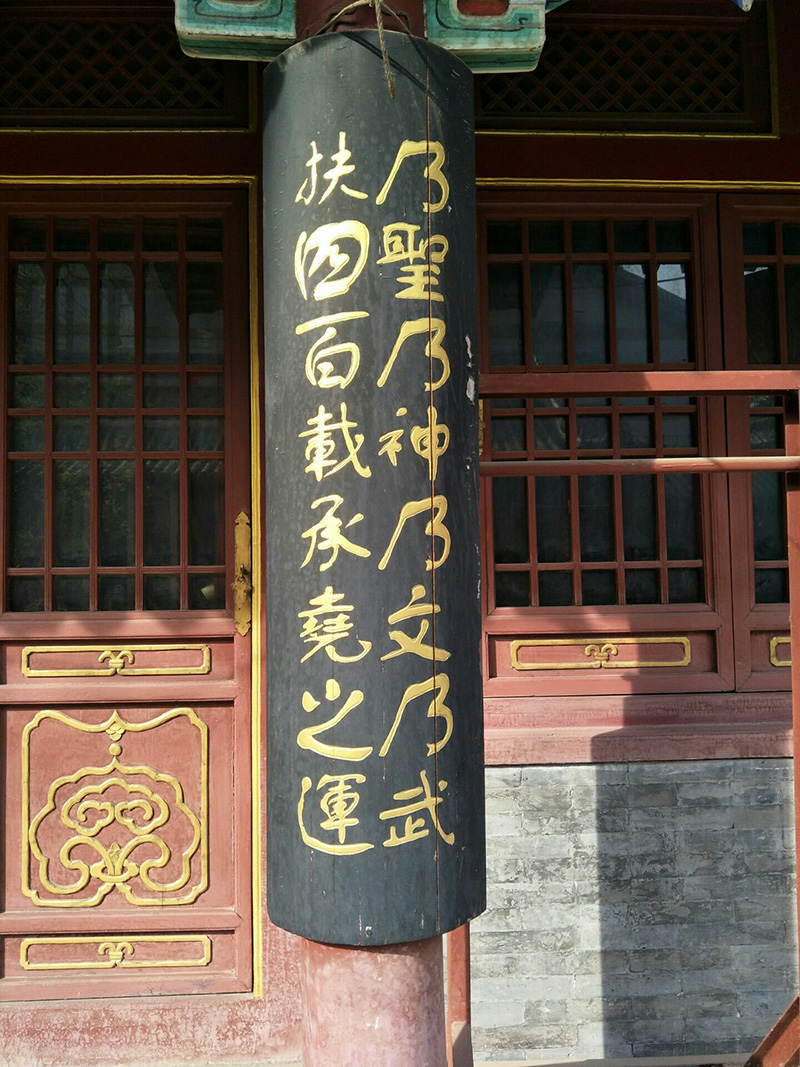 乃聖乃神乃文乃武
扶四百載承堯之運